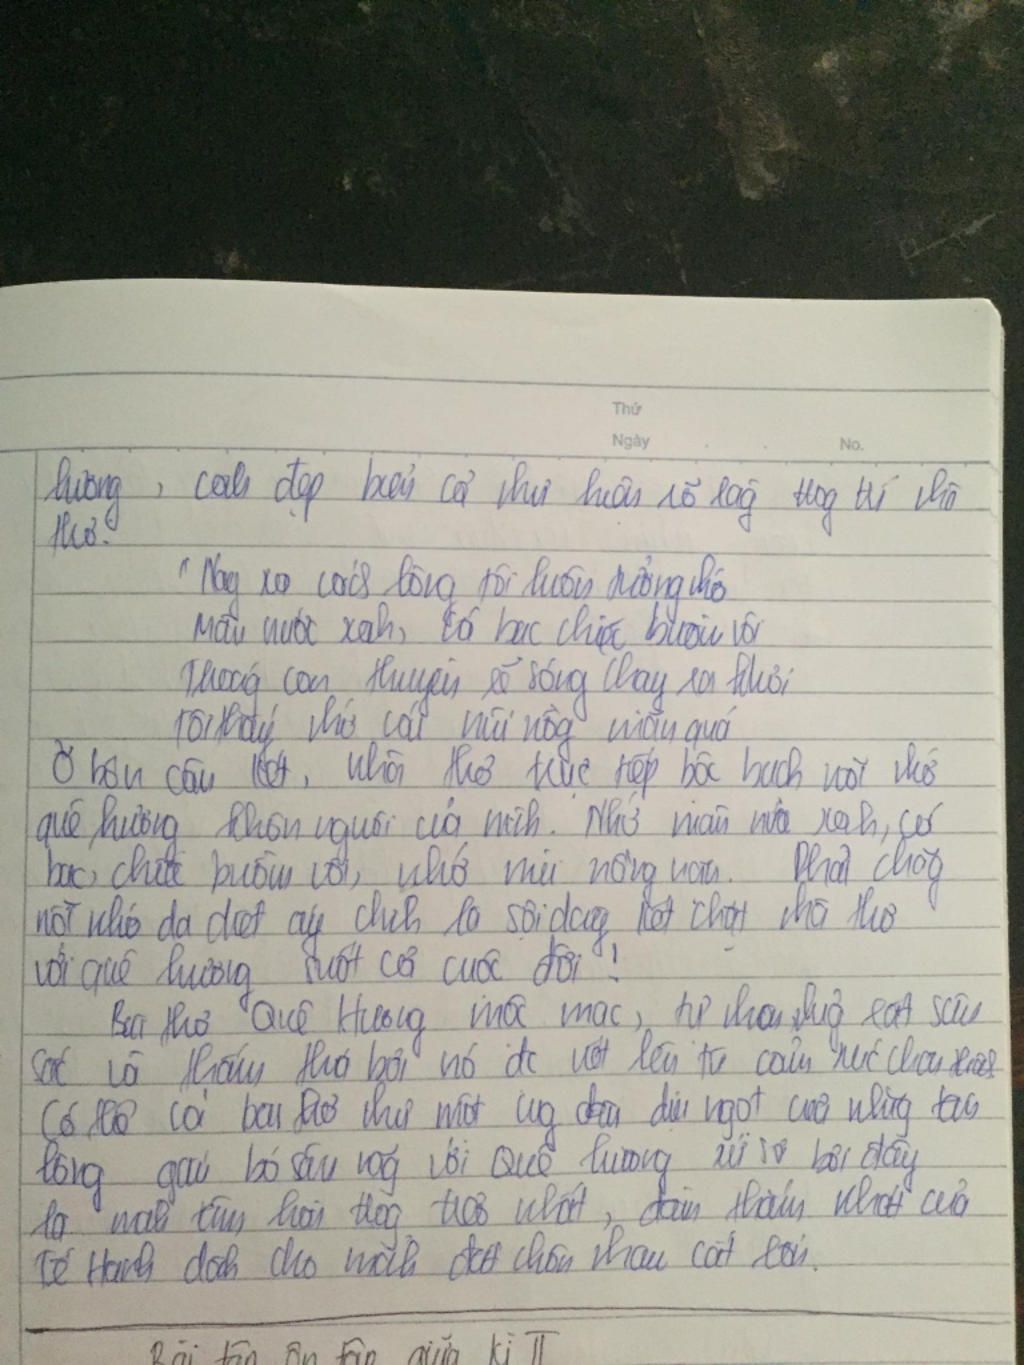 Thứ
Ngày
No.
hương, cảnh đẹp biển cả như luôn rõ rag trog trí nhà
thơ.
"Nay xa cách lòng tôi luôn tưởng nhớ
Màu nước xanh, cá bạc chiếc buồm vôi
Thoáng con thuyền rẽ sóng chạy ra khơi
Tôi thấy nhớ cái mùi nồng mặn quá
Ở bốn câu kết, nhà thơ trực tiếp bộc bạch nỗi nhớ
quê hương khôn nguôi của mình. Nhớ màu nước xanh, cá
bạc, chiếc buồm vôi, nhớ mùi nồng mặn. Phải chăng
nỗi nhớ da diết ấy chính là sợi dây kết chặt nhà thơ
với quê hương suốt cả cuộc đời!
Bài thơ Quê Hương mộc mạc, tự nhiên nhưg rất sâu
sắc và thấm thía bởi nó đc viết lên từ cảm xúc chân thật
Có thể coi bài thơ như một cug đàn dịu ngọt của những tấm
lòng gắn bó sâu nặg với Quê hương xứ sở bởi đây
là mảnh tâm hồn trog trẻo nhất, đằm thắm nhất của
Tế Hanh dành cho mảnh đất chôn nhau cắt rốn.
Bài tập ôn tập giữa kì II